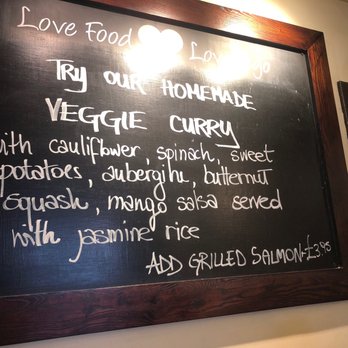 Love Food Lo
TRY OUR HOMEMADE
VEGGIE CURRY
with cauliflower, spinach, sweet
potatoes, aubergine, butternut
squash, mango salsa served
with jasmine rice
ADD GRILLED SALMON-£3.95